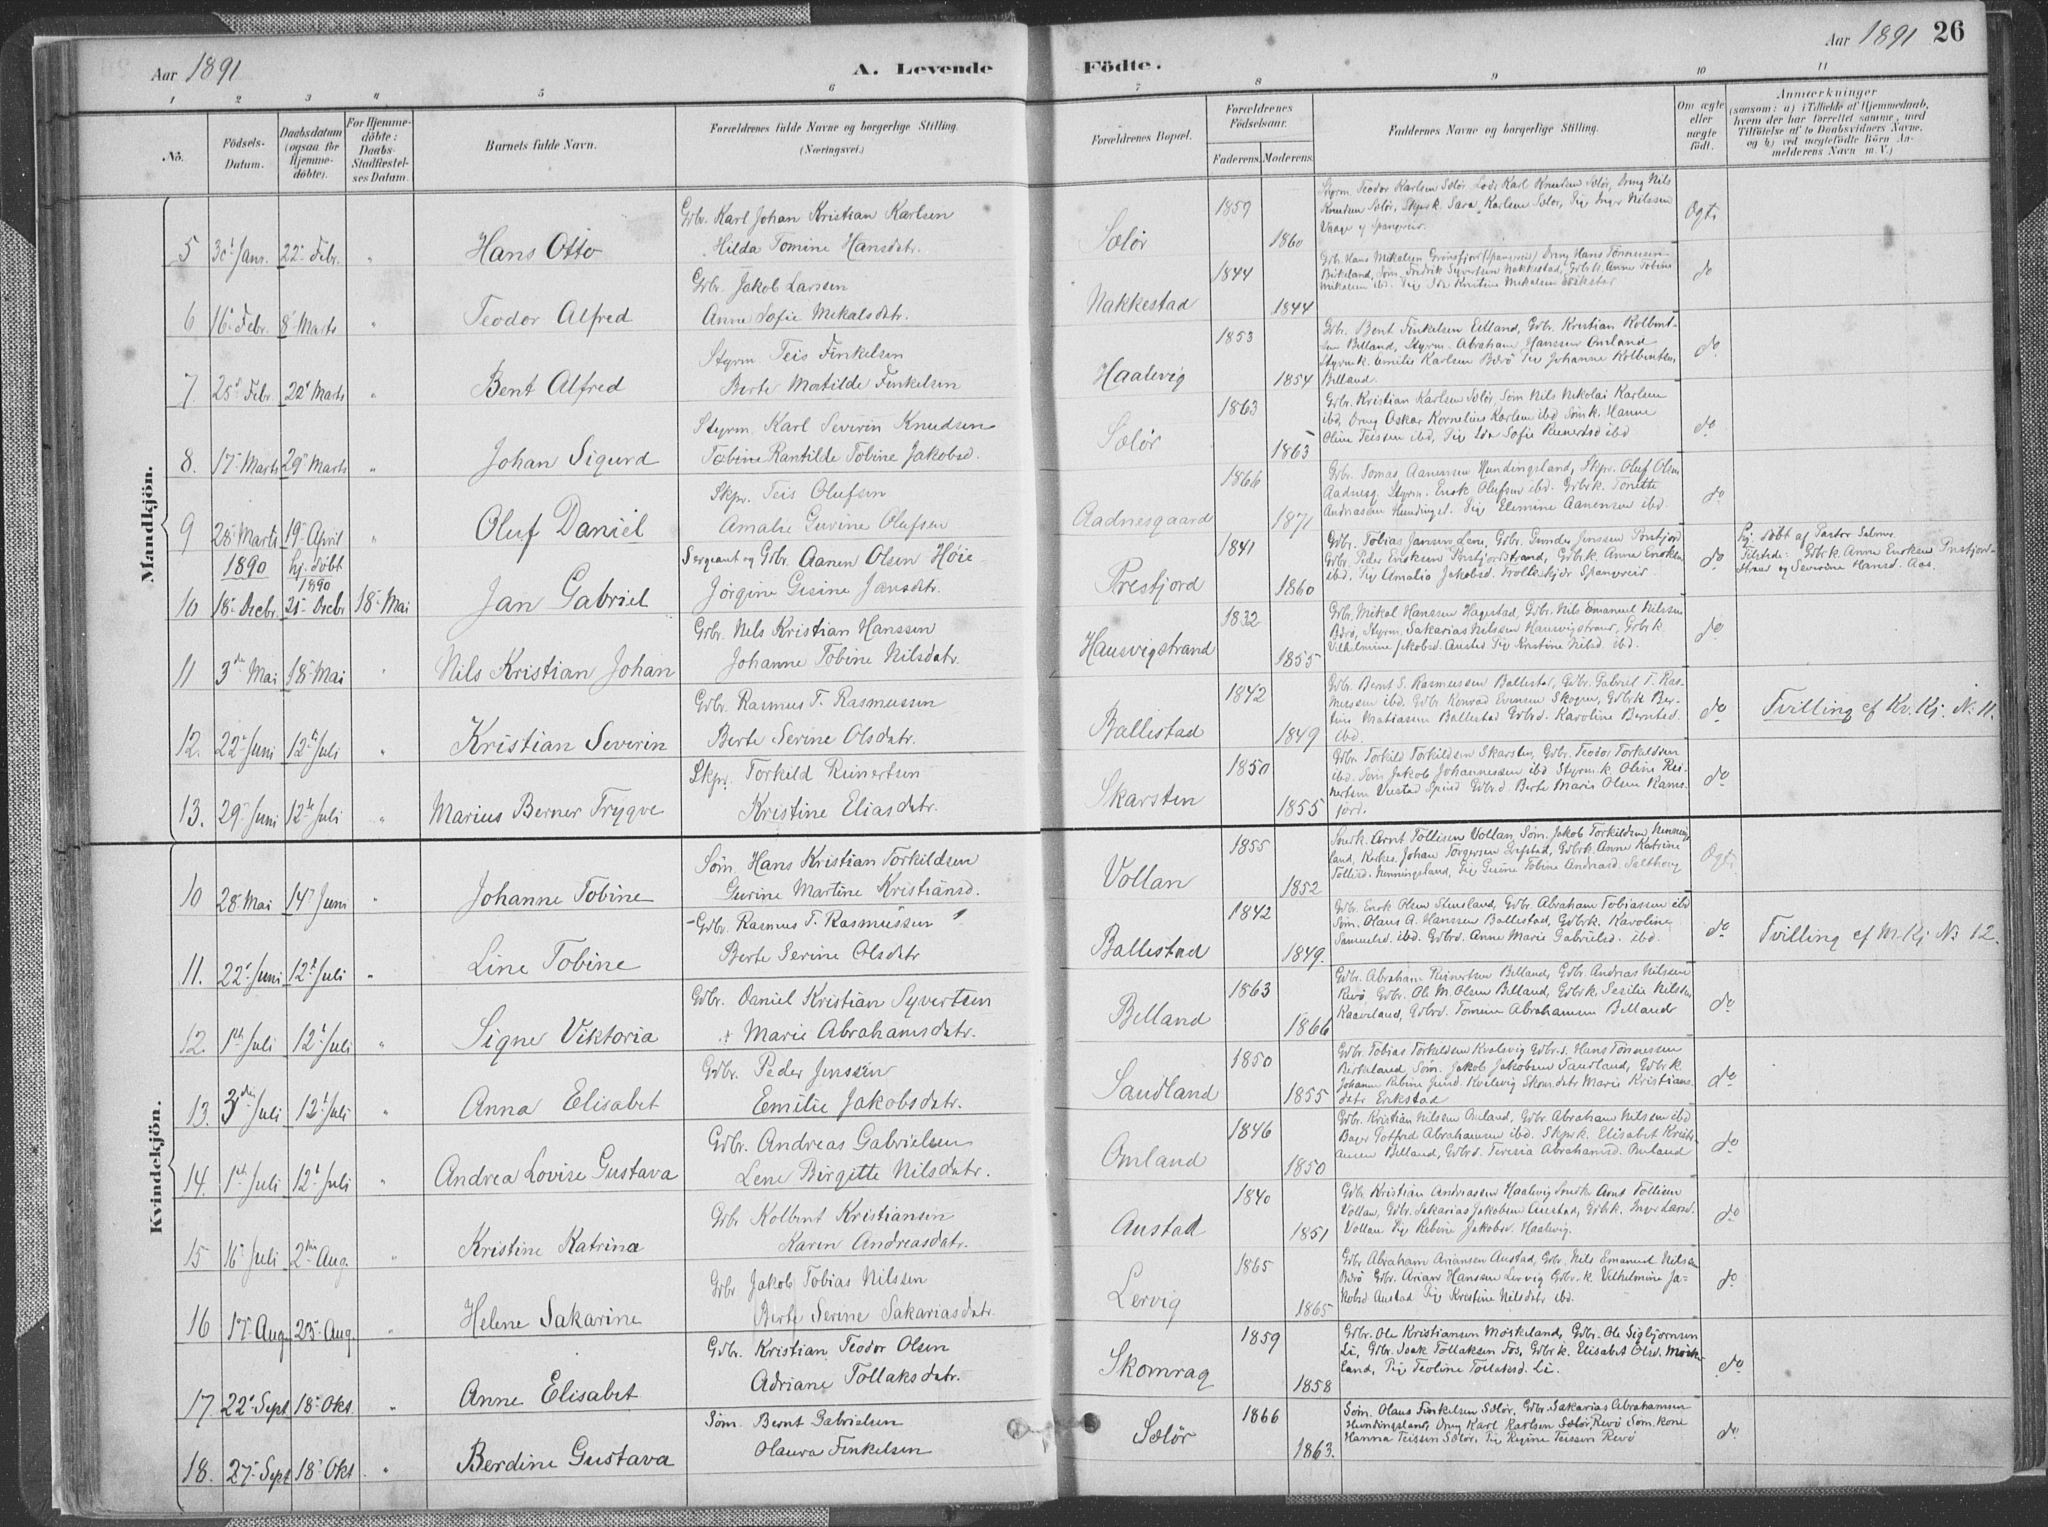 Aar 1891
A. Levende Födte.
Aar 1891 26
1 2 3 4 5 6 7 8 9 10 11
No.
Födsels-Datum.
Daabsdatum (ogsaa for Hjemmedöbte).
For Hjemmedöbte: Daabs-Stadfæstelses Datum.
Barnets fulde Navn.
Forældrenes fulde Navne og borgerlige Stilling. (Næringsvei.)
Forældrenes Bopæl.
Forældrenes Födselsaar.
Faderens. Moderens.
Faddernes Navne og borgerlige Stilling.
Om ægte eller uægte födt.
Anmærkninger
(saasom: a) i Tilfælde af Hjemmedaab, hvem der har forrettet samme, med Tilföielse af to Daabsvidners Navne, og b) ved uægtefödte Börn Anmelderens Navn m. V.)
Mandkjön.
5 30' Janr. 22' Febr. " Hans Otto
Gbr. Karl Johan Kristian Karlsen
Hilda Tomine Hansdatr.
Sælør 1859 1860
Styrm. Teodor Karlsen Sælør, Lods Karl Knudsen Sælør, Ung Nils
Knudsen Sælør, Skprk. Sara Karlsen Sælør, Pig Inger Nilssen
Vaage og Spangereid
Ægte
6 16' Febr. 8' Marts " Teodor Alfred
Gbr. Jakob Larssen
Anne Sofie Mikalsdatr.
Nakkestad 1844 1844
do
7 25' Febr. 22' Marts " Bent Alfred
Styrm. Teis Finkelsen
Berte Matilde Finkelsen
Haalevig 1853 1854
Gbr. Bent Finkelsen Eitland, Gbr. Kristian Kolbent-
sen Billand, Styrm. Abraham Hanssen Omland
Styrmk. Amilie Karlsen Bærø Pig Johanne Kolbentsen
Billand.
do
8. 17' Marts 29' Marts " Johan Sigurd
Styrm. Karl Severin Knudsen
Tobine Rantilde Tobine Jakobsd.
Sælør 1863 1863
Gbr. Kristian Karlsen Sælør, Søm Nils Nikolai Karlsen
ibd, Ung Oskar Kornelius Karlsen ibd Sømk. Hanne
Oline Teissen ibd, Pig Ida Sofie Reinertsd ibd
do
9 28' Marts 19' April " Oluf Daniel
Skpr. Teis Olufsen
Amalie Gurine Olufsen
Aadnesgaard 1866 1871
Gbr. Tomas Aanensen Hundingsland, Skpr. Oluf Olsen
Aadnesg. Styrm. Enok Olufsen ibd. Gbrk. Tonette
Andreasen Hundingsl. Pig Elemine Aanensen ibd.
do
10 1890 18' Decbr. hj. døbt 1890 21' Decbr 18' Mai Jan Gabriel
Sergeant og Gbr. Aanen Olsen Høie
Jørgine Gesine Jansdatr.
Presfjord 1841 1860
Gbr. Tobias Jansen Lene, Gbr. Gunder Jenssen Presfjord
Gbr. Peder Enoksen Presfjordstrand, Gbrk. Anne Enoksen
ibd. Pig Amalia Jakobsd. Trolle Spangereid
do
Hj. døbt af Pastor
Tilstede: Gbrk. Anne Enoksen Presfjord-
strand og Severine Hansd. Aas.
11 3die Mai 18' Mai " Nils Kristian Johan
Gbr. Nils Kristian Hanssen
Johanne Tobine Nilsdatr.
Hausvigstrand 1832 1855
Gbr. Mikal Hanssen Hagestad, Gbr. Nils Emanuel Nilssen
Bærø, Styrm. Sakarias Nilssen Hausvigstrand, Gbrk.
Vilhelmine Jakobsd. Austad Pig Kristine Nilsd. ibd.
do
12. 22' Juni 12te Juli " Kristian Severin
Gbr. Rasmus T. Rasmussen
Berte Serine Olsdatr.
Ballestad 1842 1849
Gbr. Bernt S. Rasmussen Ballestad, Gbr. Gabriel T. Ras-
mussen ibd. Gbr. Konrad Evensen Skogen, Gbrk Ber-
tine Matiassen Ballestad Gbrd. Karoline Berntsd.
ibd.
do
Tvilling cf Kv. Kj. No 11.
13. 29' Juni 12te Juli " Marius Berner Trygve
Skpr. Torkild Reinertsen
Kristine Eliasdatr.
Skarsten 1850 1855
Gbr. Torkild Torkildsen Skarsten, Gbr. Teodor Torkildsen
ibd. Søm Jakob Johannessen ibd Styrmk. Oline Rei-
nertsen Vrestad Spind Gbrd. Berte Marie Olsen Rams-
fjord.
do
Kvindekjön.
10 28' Mai 14' Juni " Johanne Tobine
Søm. Hans Kristian Torkildsen
Gurine Martine Kristiansd.
Vollan 1855 1852
Snedk. Arnt Tollisen Vollan, Søm. Jakob Torkildsen Henning-
land, Kirkes. Johan Torgersen Lofstad, Gbrk. Anne Katrine
Tollisd. Henningsland, Pig Gesine Tobine Andreasd.
Ægte
11. 22' Juni 12' Juli " Line Tobine
Gbr. Rasmus T. Rasmussen
Berte Serine Olsdatr
Ballestad 1842 1849.
Gbr. Enok Olsen Stensland, Gbr. Abraham Tobiassen ibd
Søm. Olaus A. Hanssen Ballestad, Gbrk. Karoline
Samuelsd. ibd. Gbrd. Anne Marie Gabrielsd. ibd.
do
Tvilling cf M. Kj No 12.
12. 1ste Juli 12' Juli " Signe Viktoria
Gbr. Daniel Kristian Syvertsen
Marie Abrahamsdatr.
Belland 1863 1866
Gbr. Abraham Reinertsen Belland, Gbr. Andreas Nilssen
Revø, Gbr. Ole M. Olsen Belland, Gbrk. Sesilie Nilssen
Kaaveland, Gbrd. Tomine Abrahamsen Belland
do
13. 3die Juli 12' Juli " Anna Elisabet
Gbr. Peder Jenssen
Emilie Jakobsdatr.
Sandland 1850 1855
Gbr. Tobias Torkildsen Kvalevig Gbr.s. Hans Tønnessen
Berkeland Søm. Jakob Jakobsen Sandland, Gbrk
Johanne Rebine Kvilevig Marie Kristians-
datr Erikstad
do
14. 1ste Juli 12' Juli " Andrea Lovise Gustava
Gbr. Andreas Gabrielsen
Lene Birgitte Nilsdatr.
Omland 1846 1850
Gbr. Kristian Nilssen Omland, Gbr. Abraham Nilssen ibd
Bager Gotfred Abrahamsen ibd. Skprk. Elisabet Kristi-
ansen Belland, Gbrd. Teresia Abrahamsd. Omland
do
15 16' Juli 2den Aug. " Kristine Katrina
Gbr Kolbent Kristiansen
Karen Andreasdatr.
Austad 1840 1851
Gbr Kristian Andreassen Haalevig Snedk Arnt Tollisen
Vollan, Gbr. Sakarias Jakobsen Austad, Gbrk. Inger Larsd.
Vollan Pig Rebine Jakobsd. Haalevig.
do
16 17' Aug. 23' Aug. " Helene Sakarine
Gbr Jakob Tobias Nilssen
Berte Serine Sakariasdatr
Lervig 1865 1865
Gbr Abraham Ariansen Austad, Gbr. Nils Emanuel Nilsen
Bærø Gbr. Arian Hanssen Lervig Gbr.k. Vilhelmine Ja-
kobsd Austad Pig Kristine Nilsdatr ibd.
do
17. 22' Sept 18' Okt. " Anne Elisabet
Gbr. Kristian Teodor Olsen
Adriane Tollaksdatr.
Skomrag 1859 1858
Gbr. Ole Kristiansen Møskeland, Gbr. Ole Sigbjørnsen
Li, Gbr. Isak Tollaksen Fos, Gbrk. Elisabet Olsd. Møske-
land, Pig Teoline Tollaksd. Li.
do
18. 27' Sept 18' Okt. " Berdine Gustava
Søm. Bernt Gabrielsen
Olaura Finkelsen
Sælør 1866 1863.
Søm. Olaus Finkelsen Sælør, Gbr. Sakarias Abrahamsen
Hundingsland, Ung Karl Karlsen Sælør, Revø Sømkone
Hanna Teissen Sælør, Pig Regine Teissen Revø
do